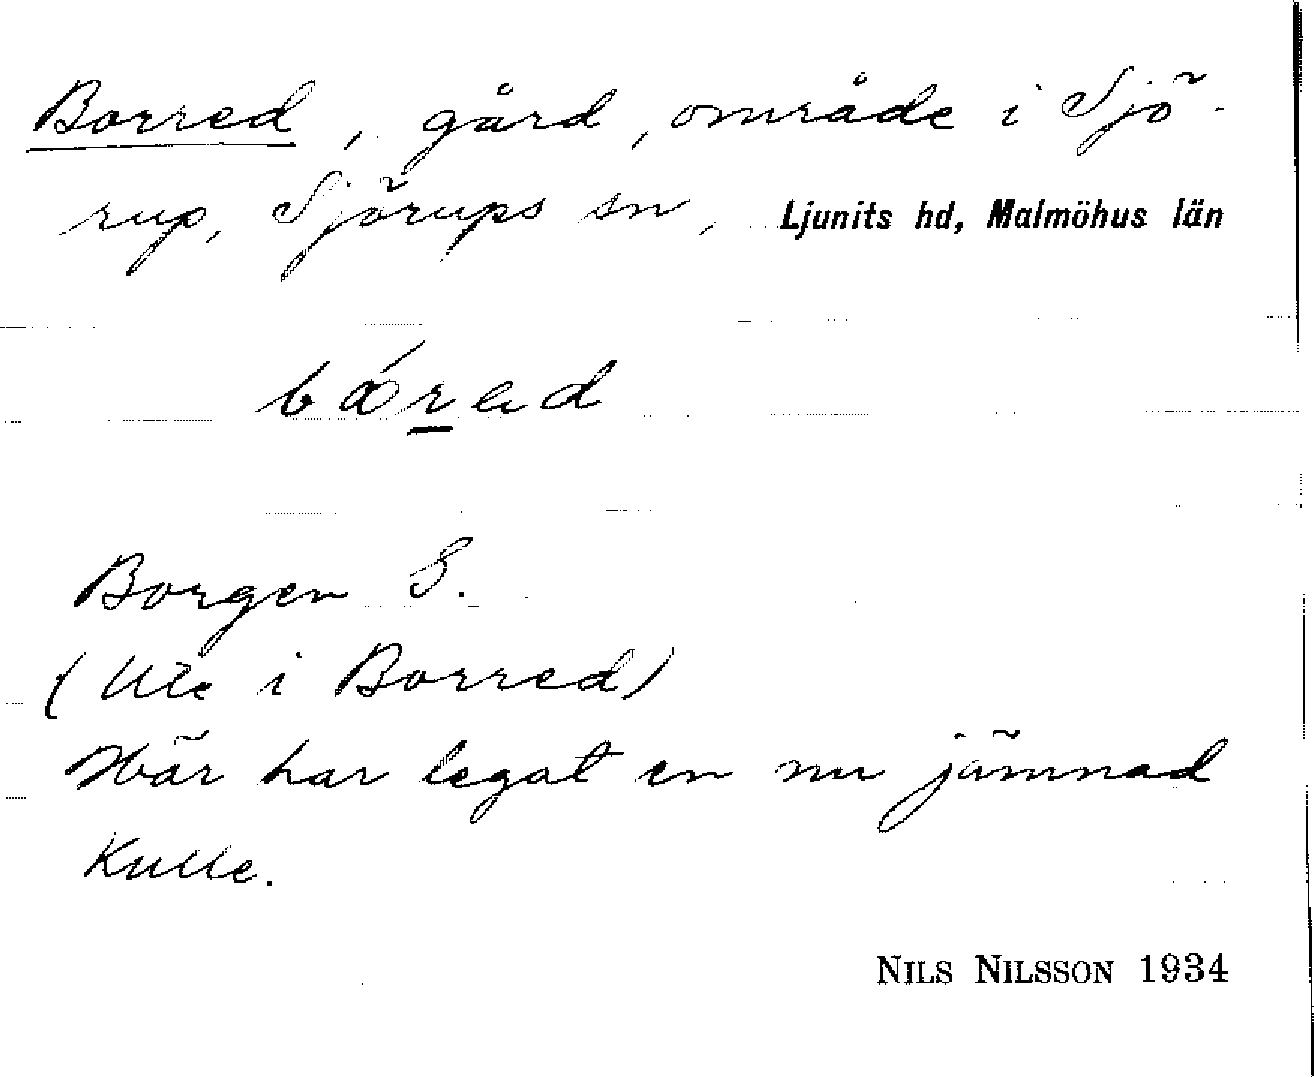 Borred, gård, område i Sjö-
rup, Sjörups sn, Ljunits hd, Malmöhus län
Borgen S.
(Ute i Borred)
Här har legat en nu jämnad
Kulle.
NILS NILSSON 1934